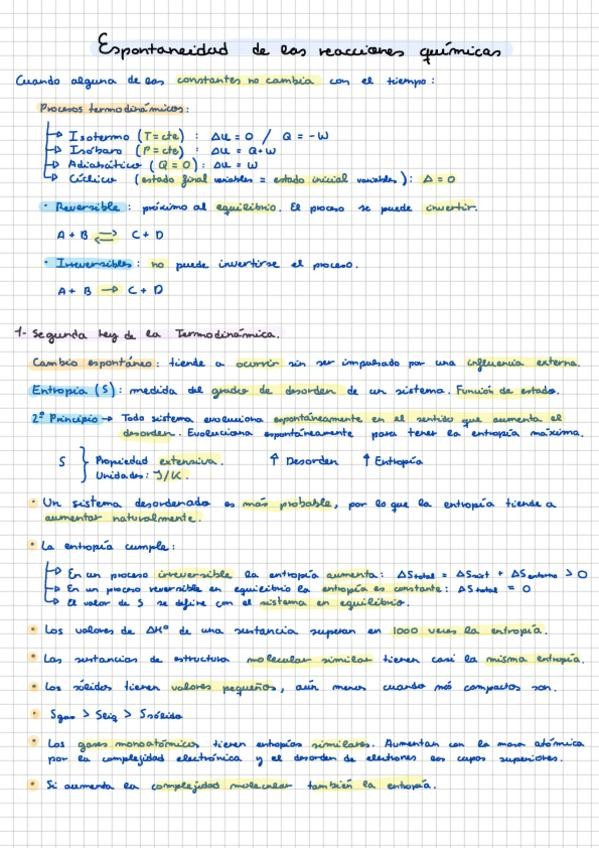 Espontaneidad de las reacciones químicas
Cuando alguna de las constantes no cambia con el tiempo:
Procesos termodinámicos:
→ Isotermo (T=cte) : ΔU = 0 / Q = -W
→ Isóbaro (P=cte) : ΔU = Q+W
→ Adiabático (Q=0) : ΔU = W
→ Cíclico (estado final variables = estado inicial variables) : Δ = 0
• Reversible: próximo al equilibrio. El proceso se puede invertir.
A + B ⇌ C + D
• Irreversibles: no puede invertirse el proceso.
A + B → C + D
1- Segunda Ley de la Termodinámica.
Cambio espontáneo: tiende a ocurrir sin ser impulsado por una influencia externa.
Entropía (S): medida del grado de desorden de un sistema. Función de estado.
2º Principio → Todo sistema evoluciona espontáneamente en el sentido que aumenta el
desorden. Evoluciona espontáneamente para tener la entropía máxima.
S } Propiedad extensiva. ↑ Desorden ↑ Entropía
Unidades: J/K.
• Un sistema desordenado es más probable, por lo que la entropía tiende a
aumentar naturalmente.
• La entropía cumple:
→ En un proceso irreversible la entropía aumenta: ΔStotal = ΔSsist + ΔSentorno > 0
→ En un proceso reversible en equilibrio la entropía es constante: ΔStotal = 0
→ El valor de S se define con el sistema en equilibrio.
• Los valores de ΔHº de una sustancia superan en 1000 veces la entropía.
• Las sustancias de estructura molecular similar tienen casi la misma entropía.
• Los sólidos tienen valores pequeños, aún menor cuando más compactos son.
• Sgas > Sliq > Ssólido
• Los gases monoatómicos tienen entropías similares. Aumentan con la masa atómica
por la complejidad electrónica y el desorden de electrones en capas superiores.
• Si aumenta la complejidad molecular también la entropía.